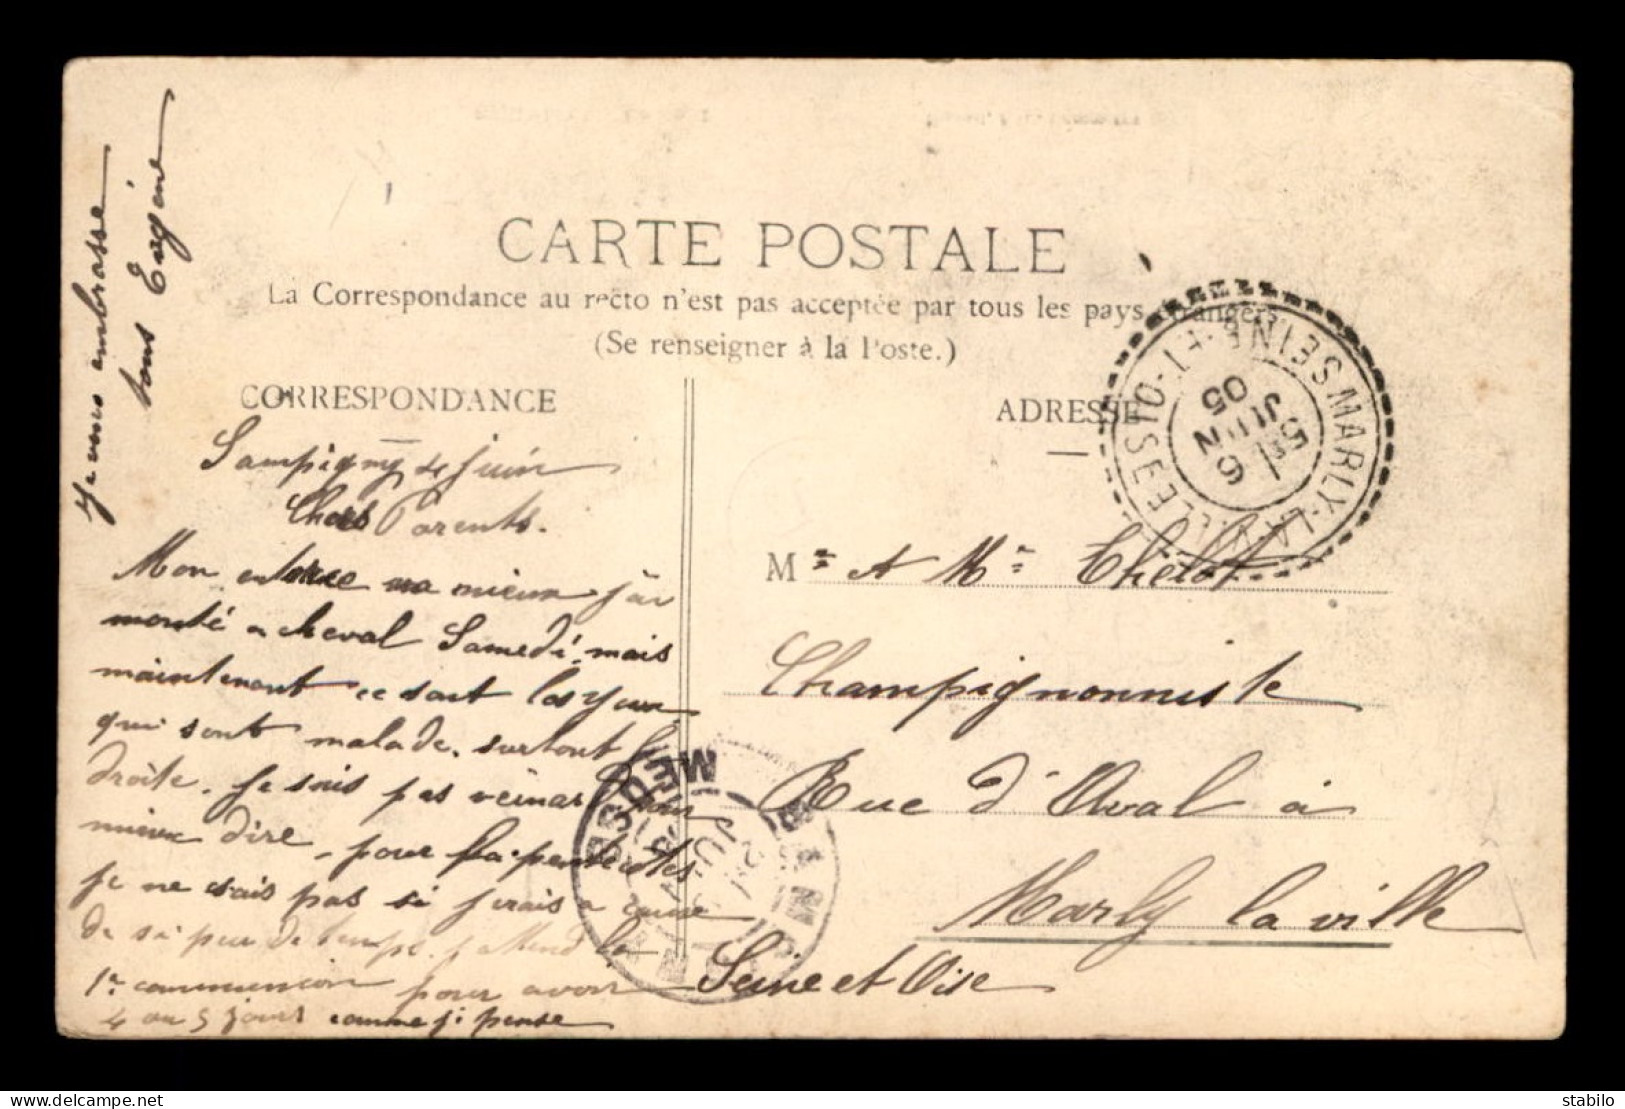 CARTE POSTALE
La Correspondance au recto n'est pas acceptée par tous les pays étrangers
(Se renseigner à la Poste.)
CORRESPONDANCE
ADRESSE
Sampigny 4 Juin
Chers Parents.
Mon entorse va mieux j'ai
monté a cheval Samedi, mais
maintenant ce sont les yeux
qui sont malade. surtout le
droite. Je suis pas veinard pour
mieux dire, pour la pentecotes
je ne sais pas si j'urais a cause
de si peu de temps. j'attend la
1r commencion pour avoir
4 ou 5 jours comme j'i pense
Je vous embrasse
tous Eugène
Mr et Me Thelot
Champignonniste
Rue d'Aval à
Marly la ville
Seine et Oise
MARLY-LA-VILLE
SEINE-ET-OISE
6
JUIN
05
SAMPIGNY
MEUSE
JUIN
delcampe.net
stabilo